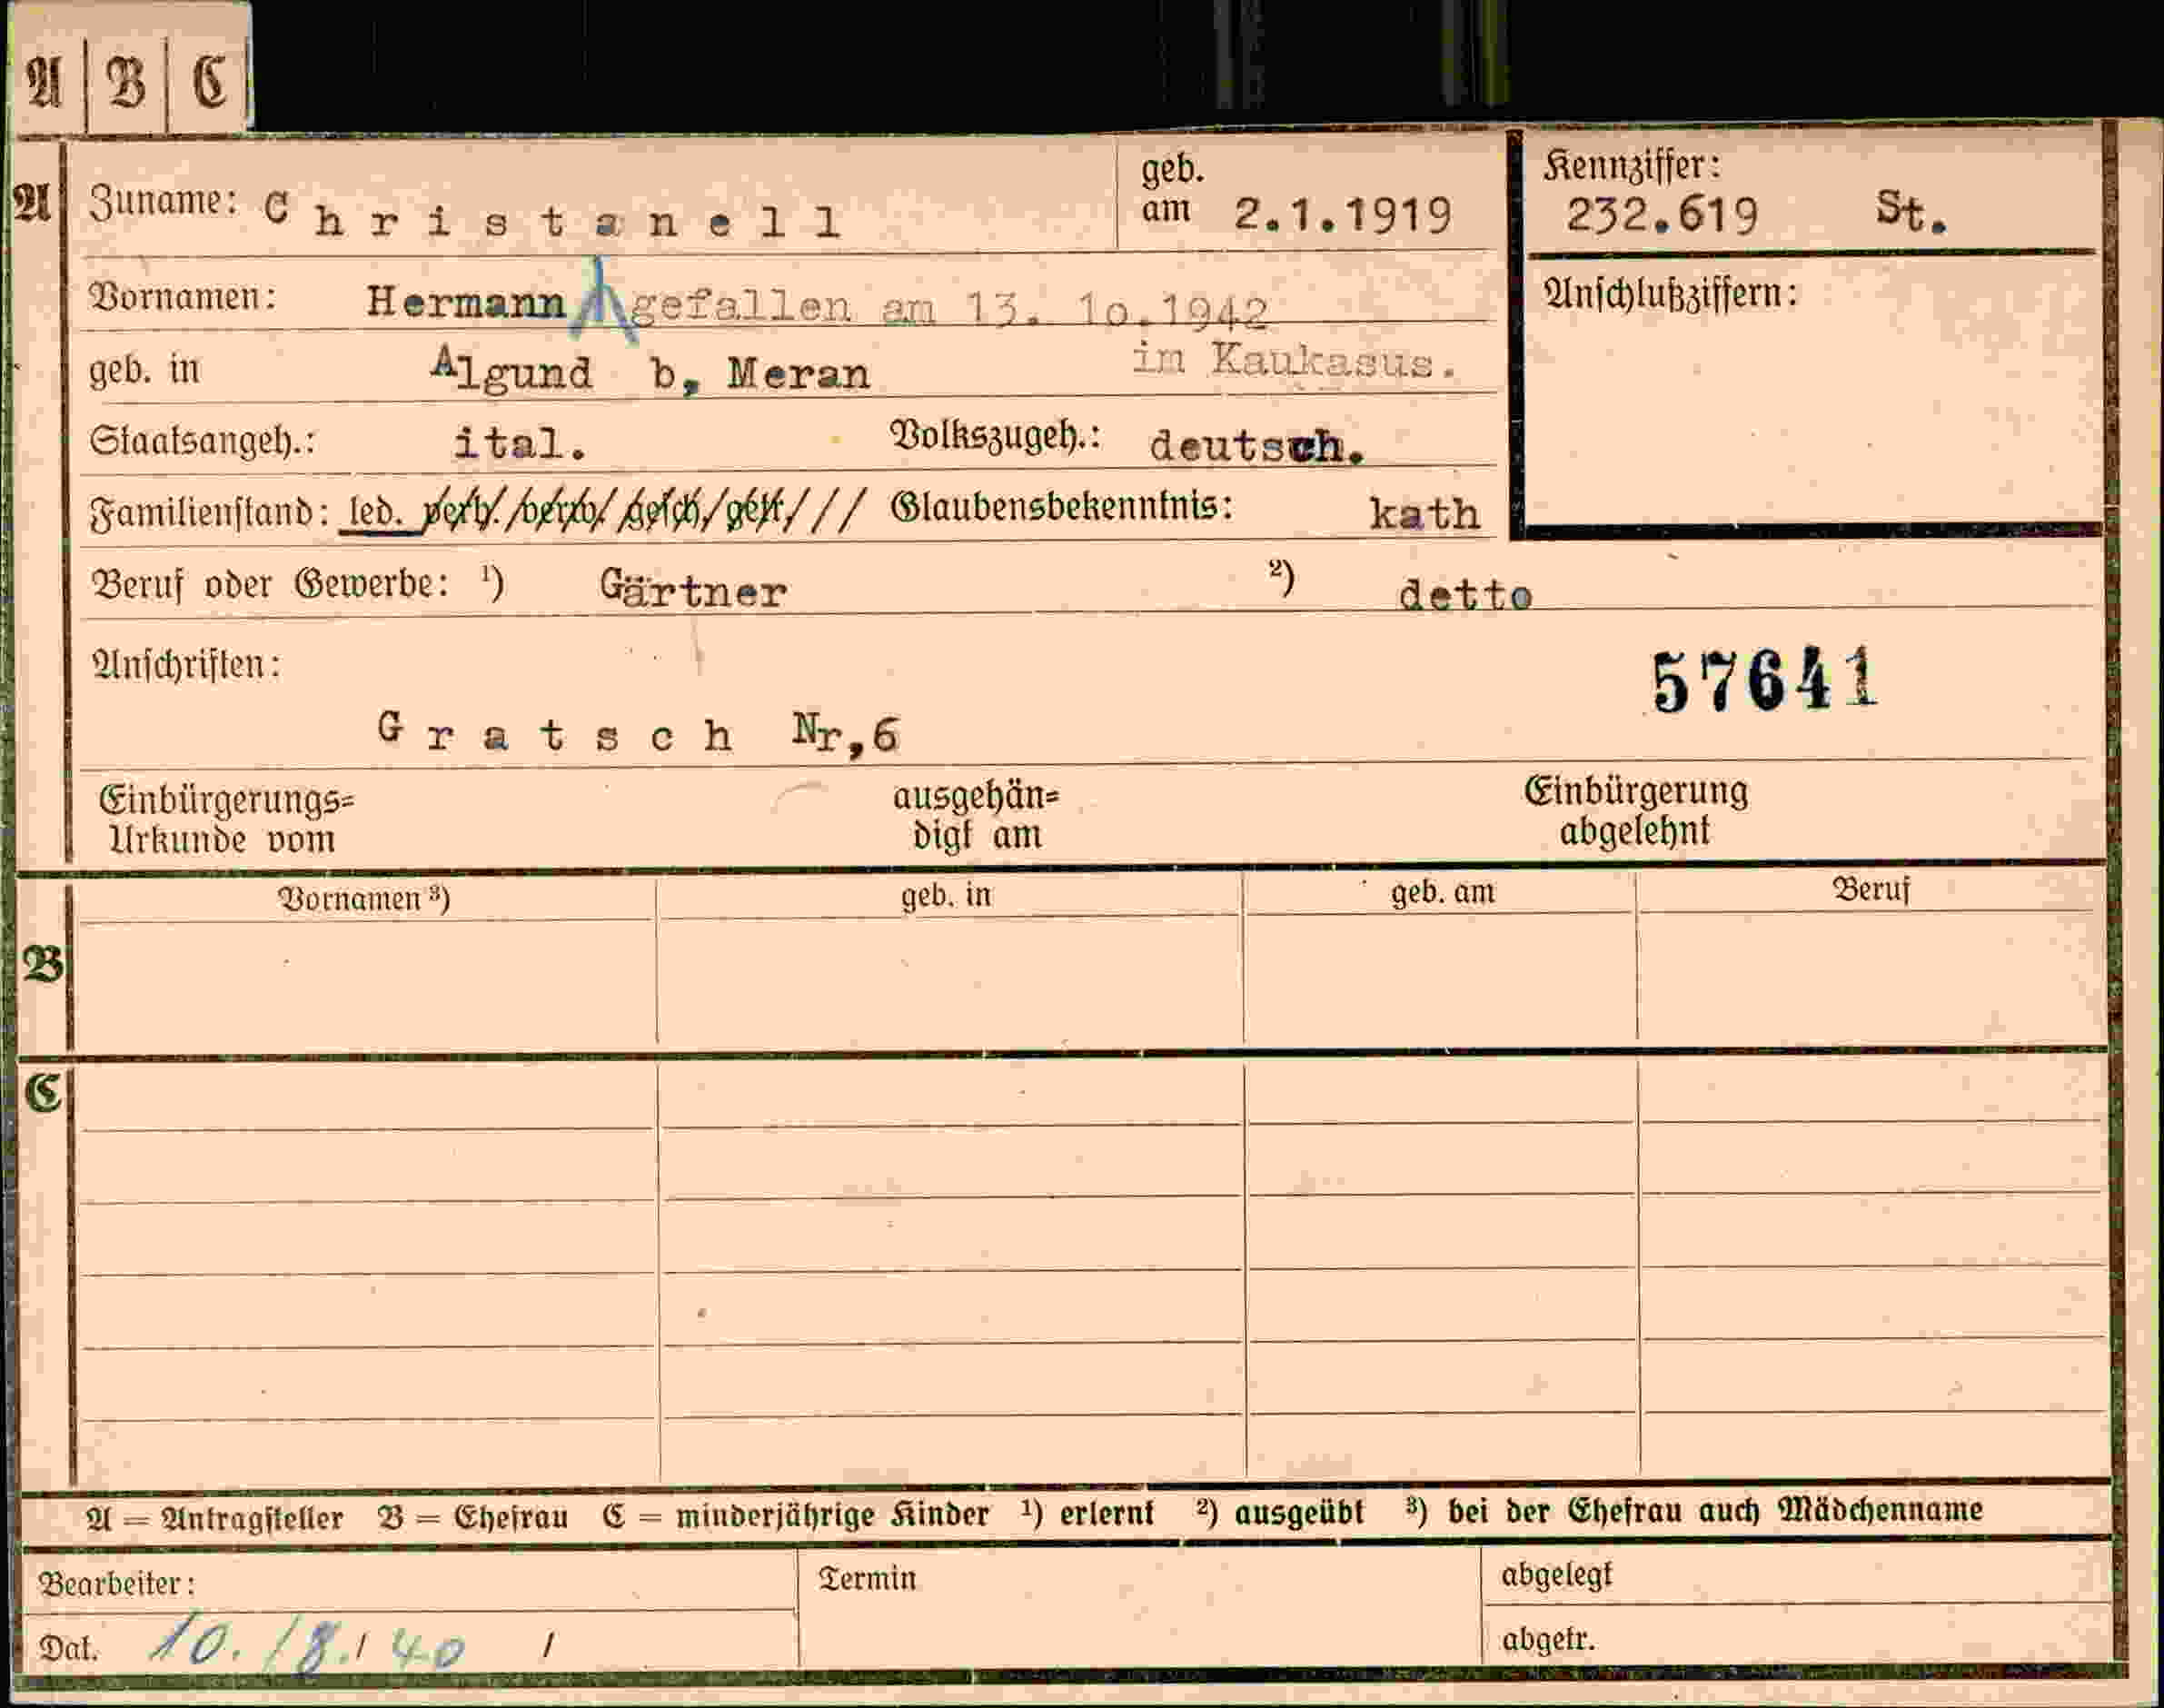 A | B | C
A Zuname: Christanell geb. am 2.1.1919 Kennziffer: 232.619 St.
Vornamen: Hermann gefallen am 13. 10.1942 Anschlußziffern:
geb. in Algund b, Meran im Kaukasus.
Staatsangeh.: ital. Volkszugeh.: deutsch.
Familienstand: led. verh./verw./gesch./getr./// Glaubensbekenntnis: kath
Beruf oder Gewerbe: ¹) Gärtner ²) detto
Anschriften: 57641
Gratsch Nr,6
Einbürgerungs= ausgehän= Einbürgerung
Urkunde vom digt am abgelehnt
Vornamen ³) geb. in geb. am Beruf
B
C
A = Antragsteller B = Ehefrau C = minderjährige Kinder ¹) erlernt ²) ausgeübt ³) bei der Ehefrau auch Mädchenname
Bearbeiter: Termin abgelegt
Dat. 10./8./40 / abgetr.